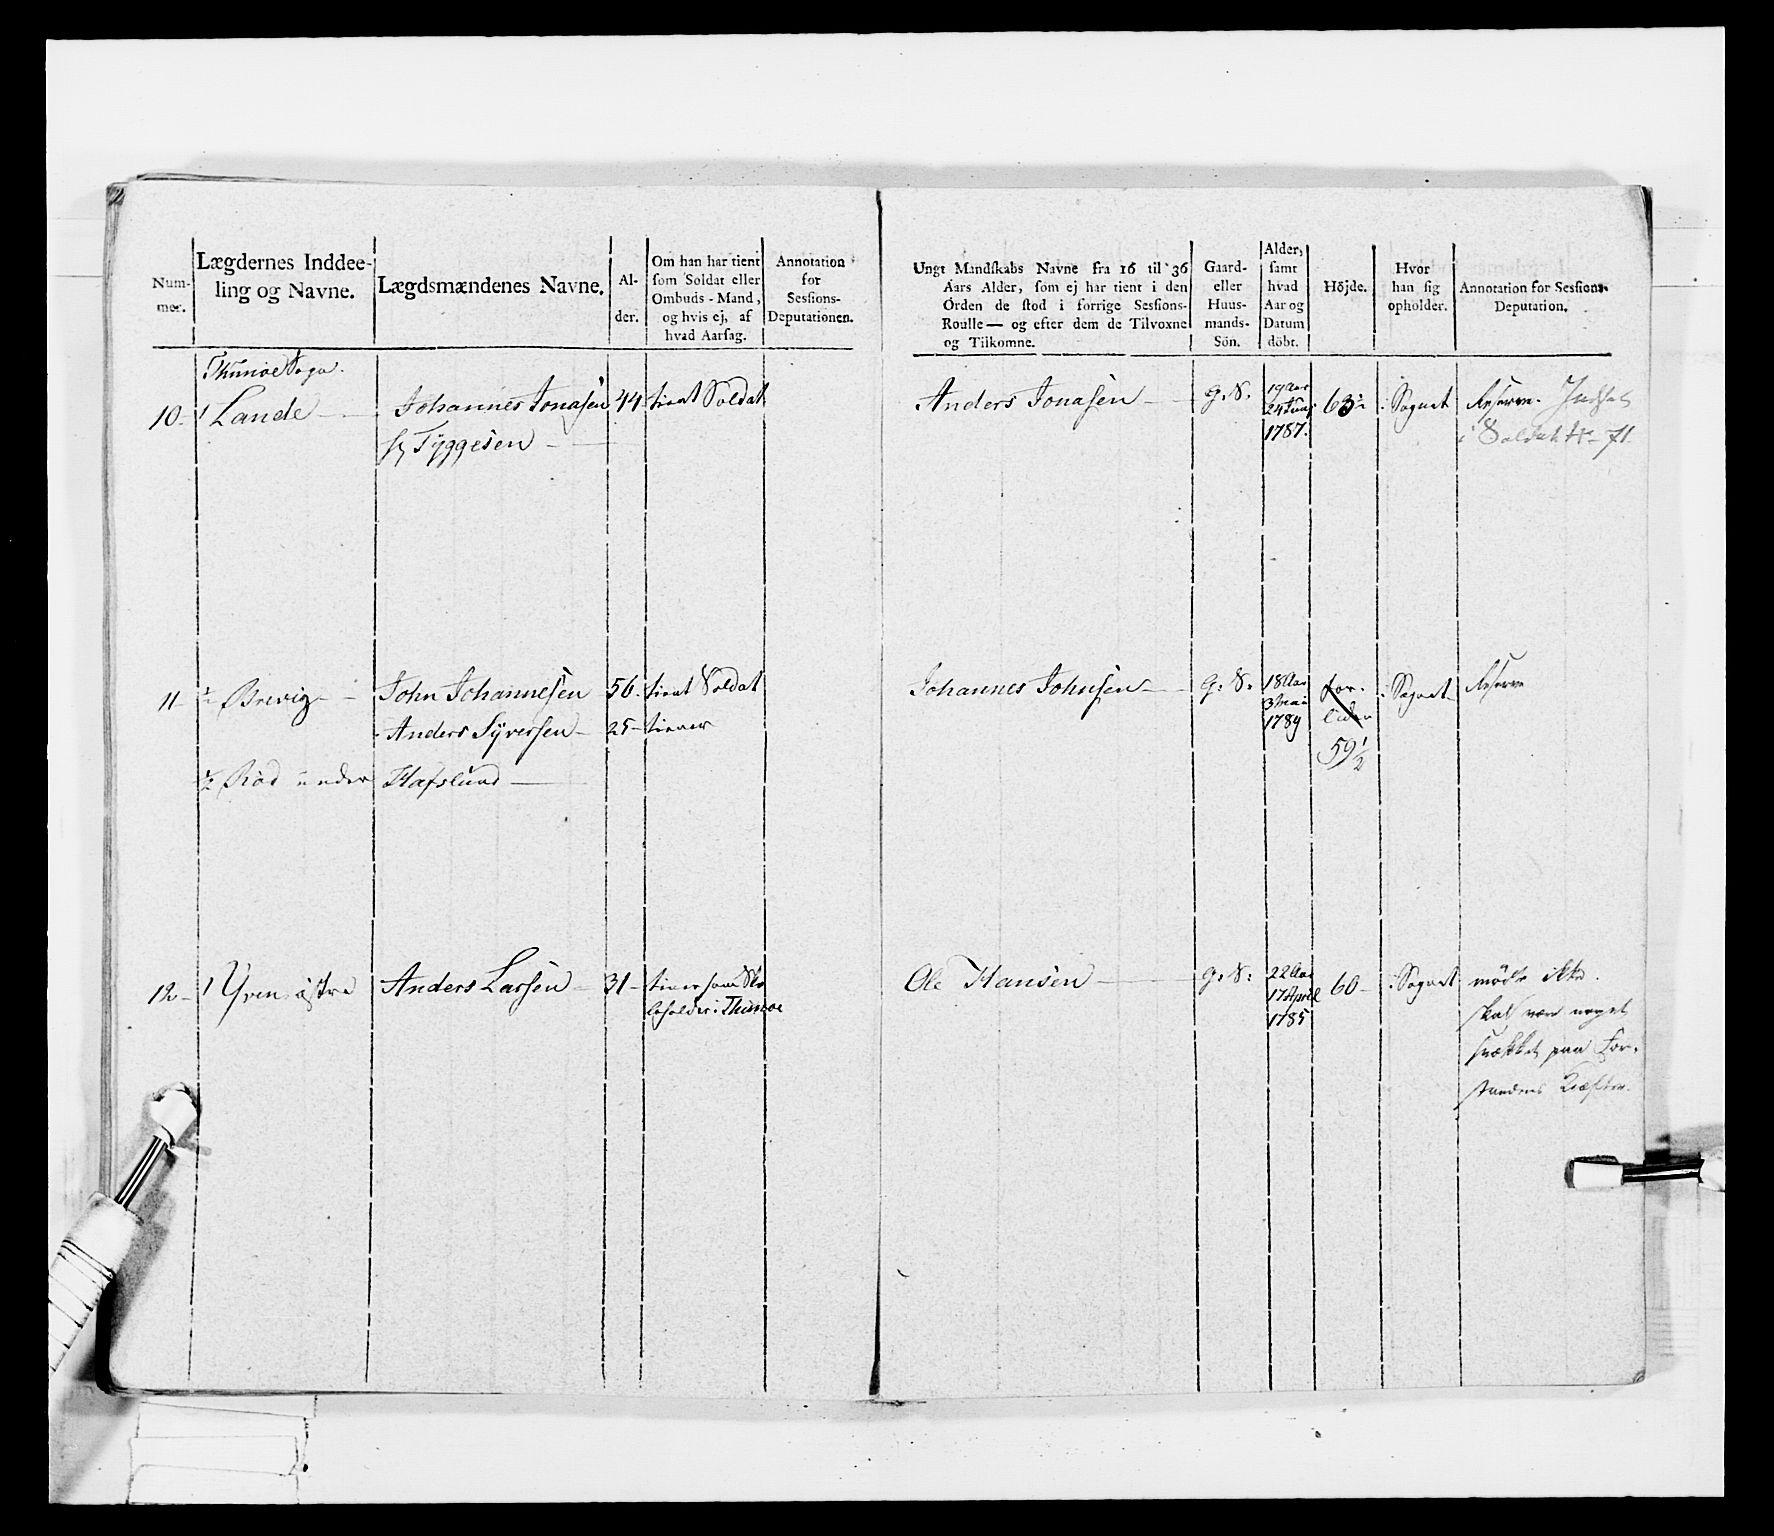 Num-
mer.
Lægdernes Inddee-
ling og Navne.
Lægdsmændenes Navne.
Al-
der.
Om han har tient
som Soldat eller
Ombuds-Mand,
og hvis ej, af
hvad Aarsag.
Annotation
for
Sessions-
Deputationen.
Thunøe Sogn.
10- 1 Lande - Johannes Jonasen 44 tient Soldat
Tyggesen -
11- ½ Brevig - John Johannesen 56- tient Soldat
Anders Syversen - 25- tiener
½ Röd under Hafslund -
12- 1 Yven östre Anders Larsen - 31- tiener som
i Thunøe
Ungt Mandskabs Navne fra 16 til 36
Aars Alder, som ej har tient i den
Orden de stod i forrige Sessions-
Roulle — og efter dem de Tilvoxne
og Tilkomne.
Gaard-
eller
Huus-
mands-
Sön.
Alder,
samt
hvad
Aar og
Datum
döbt.
Höjde.
Hvor
han sig
opholder.
Annotation for Sessions-
Deputation.
Anders Jonasen - G. S. 19 Aar
24 Juny
1787.
63½ i Sognet Reserve. Indsat
i Soldat Nr 71
Johannes Johnsen - G. S. 18 Aar
3 Mai
1789
for-
liden
59½
i Sognet Reserve
Ole Hansen - G. S. 22 Aar
17 April
1785
60- i Sognet mödte ikke.
skal være noget
svækket paa For-
standens Kræfter.